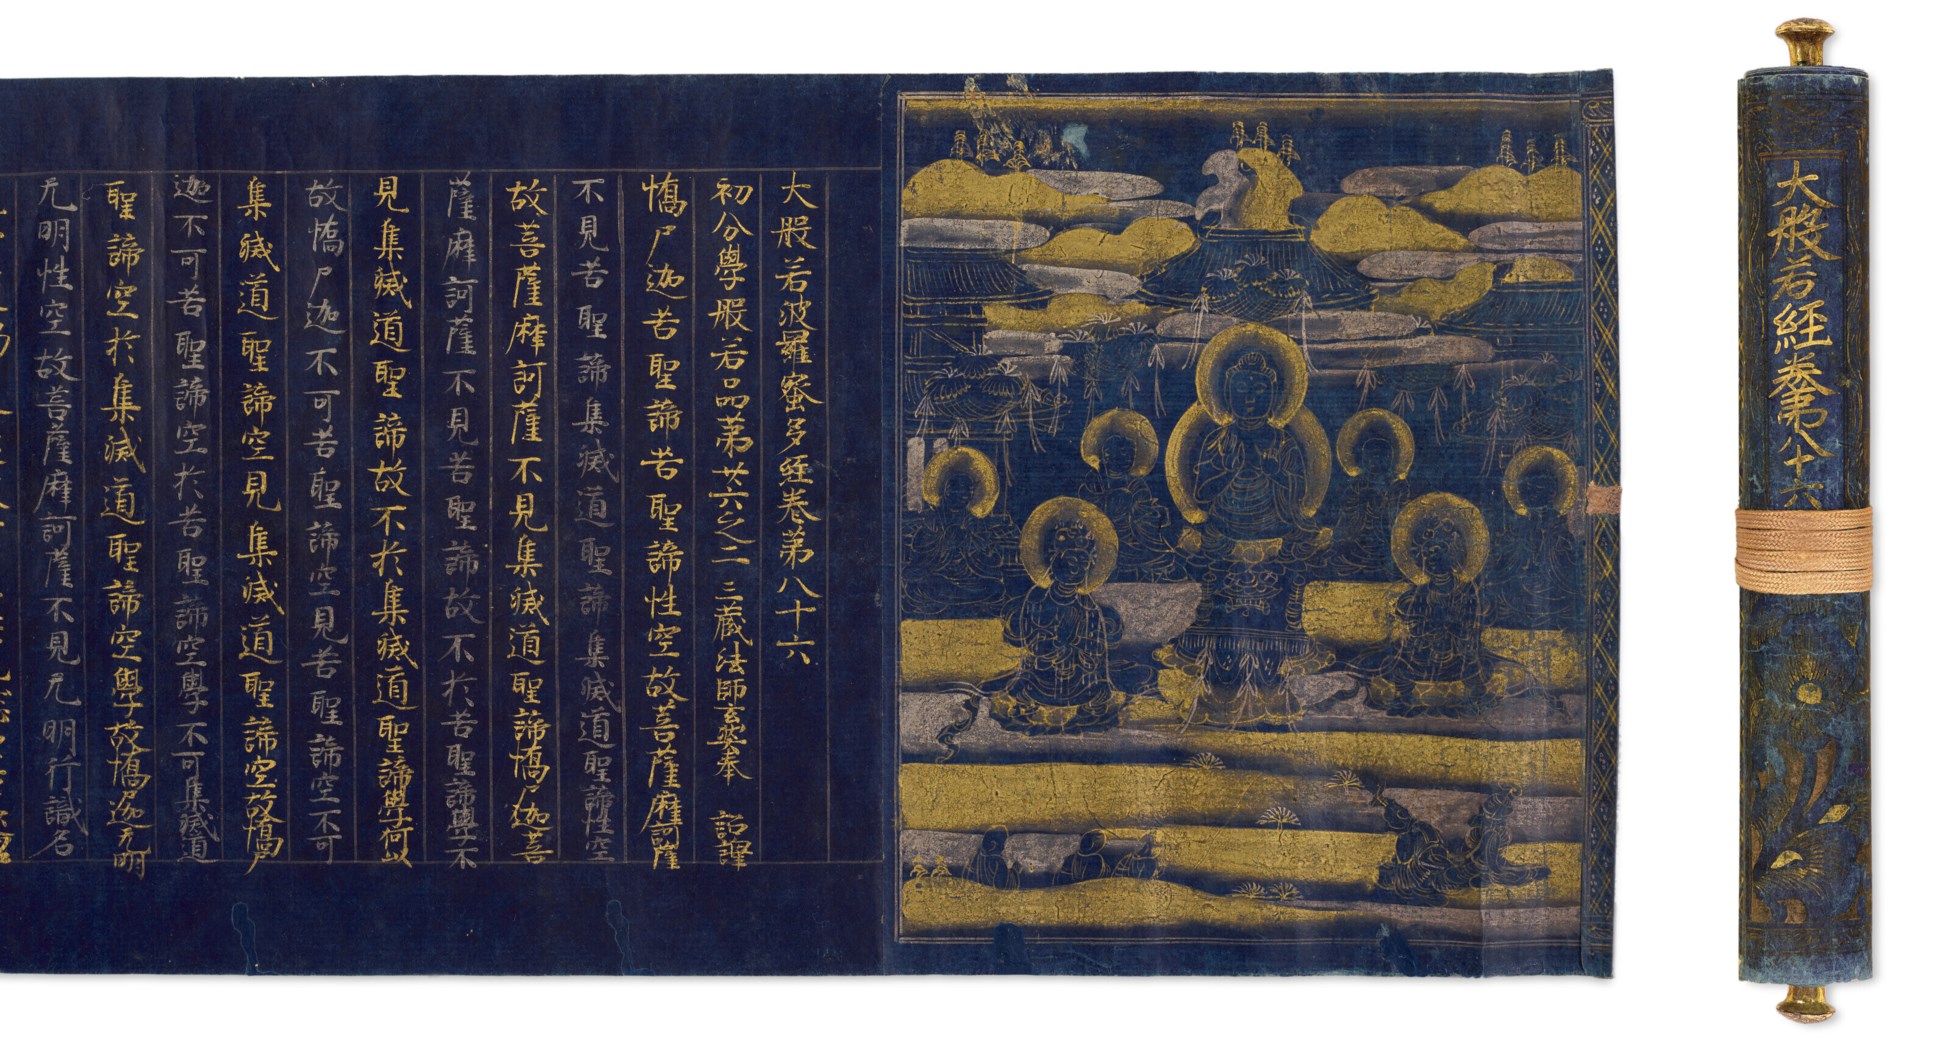 大般若經卷第八十六
大般若波羅蜜多經卷第八十六
初分學般若品第廿六之二 三藏法師玄奘奉 詔譯
憍尸迦苦聖諦苦聖諦性空故菩薩摩訶薩
不見苦聖諦集滅道聖諦集滅道聖諦性空
故菩薩摩訶薩不見集滅道聖諦憍尸迦菩
薩摩訶薩不見苦聖諦故不於苦聖諦學不
見集滅道聖諦故不於集滅道聖諦學何以
故憍尸迦不可苦聖諦空見苦聖諦空不可
集滅道聖諦空見集滅道聖諦空故憍尸
迦不可苦聖諦空於苦聖諦空學不可集滅道
聖諦空於集滅道聖諦空學故憍尸迦无明
无明性空故菩薩摩訶薩不見无明行識名